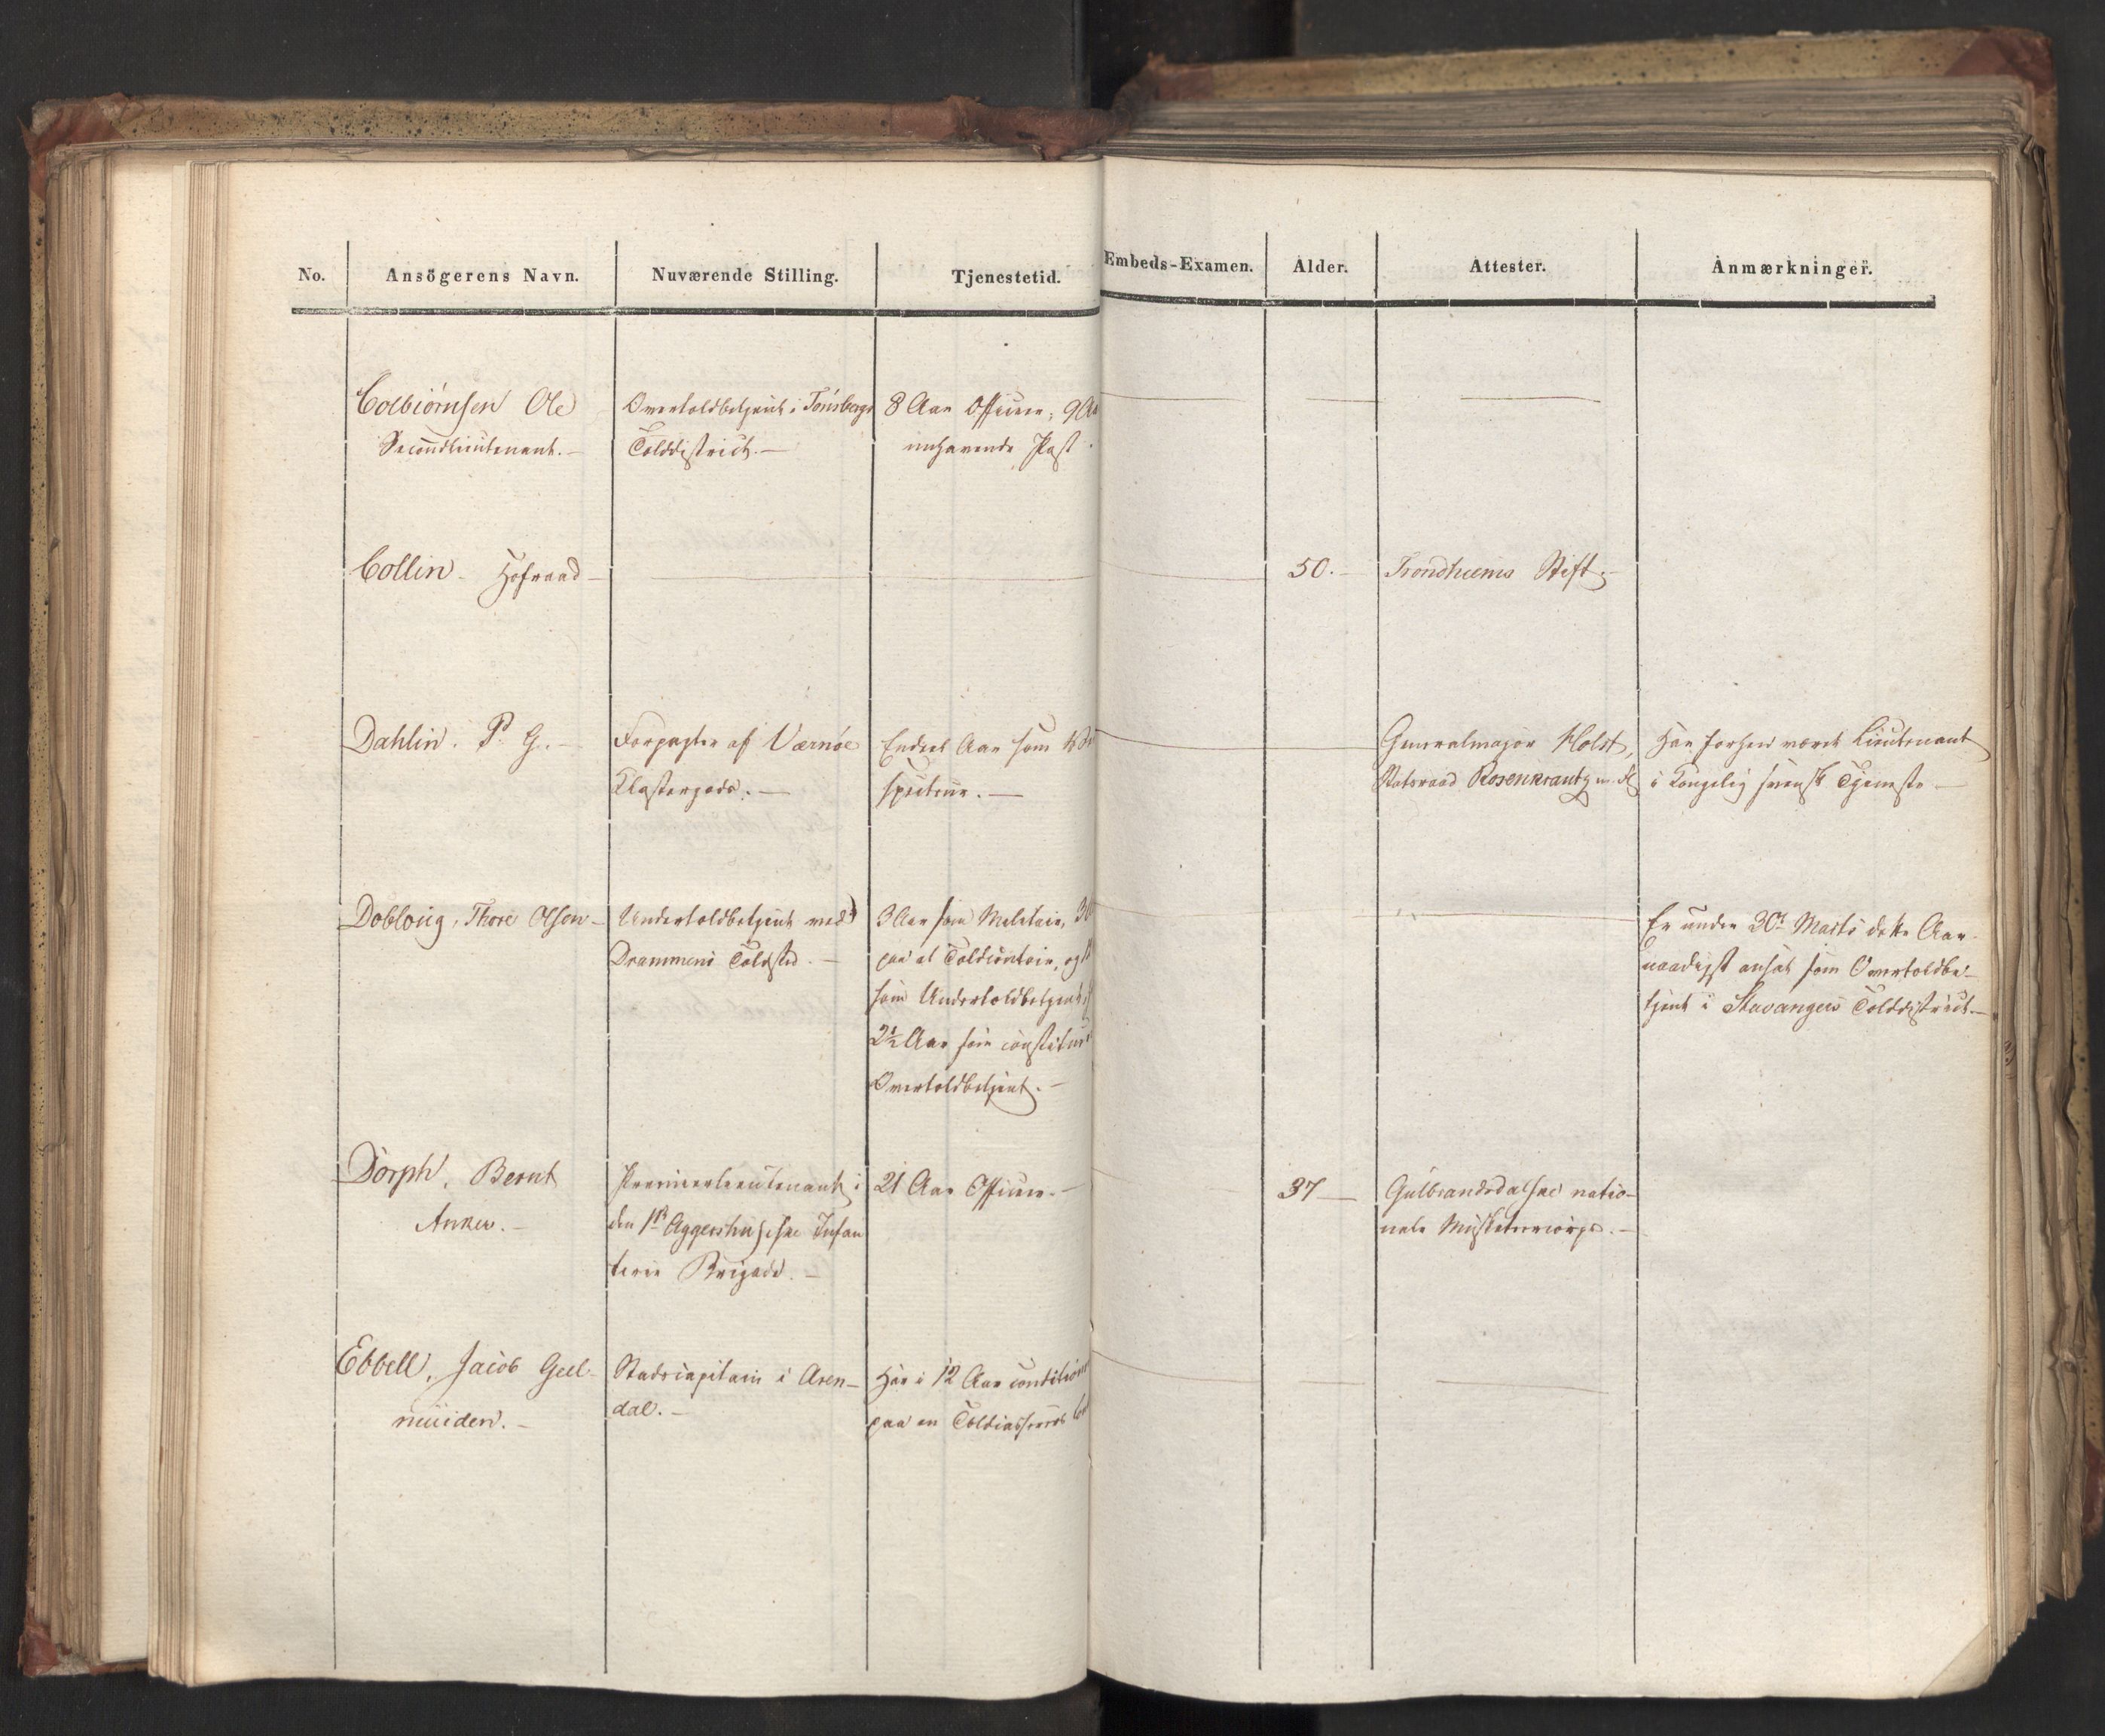 No. Ansögerens Navn. Nuværende Stilling. Tjenestetid. Embeds-Examen. Alder. Attester. Anmærkninger.
Colbiørnsen Ole
Secondlieutenant. —
Overtoldbetjent i Tønsbergs
Tolddistrict. —
8 Aar Officeer; 9 Aa
innehavende Post
Collin. Hofraad —
50. —
Trondhiems Stift. —
Dahlin. P. G. —
Forpagter af Værnøe
Klostergods. —
Endeel Aar som
Generalmajor Holst,
Statsraad Rosenkrantz m. fl.
Har forhen været Lieutenant
i Kongelig svensk Tjeneste —
Dobloug, Thore Olsen —
Undertoldbetjent ved
Drammens Toldsted. —
3 Aar som Militair, 3
paa et Toldcontoir, og
som Undertoldbetjent,
2½ Aar som constitue
Overtoldbetjent. —
Er under 30te Marts dette Aar
naadigst ansat som Overtoldbe-
tjent i Stavangers Tolddistrict. —
Dorph, Bernt
Anker. —
Premierlieutenant i
den 1ste Aggershusiske Infan
terie Brigade. —
21 Aar Officeer. —
37 —
Gulbrandsdalske natio-
nale Musketeercorps. —
Ebbell, Jacob Geel-
muiden. —
Stadscapitain i Aren-
dal. —
Har i 12 Aar conditioner
paa en Toldcasserers